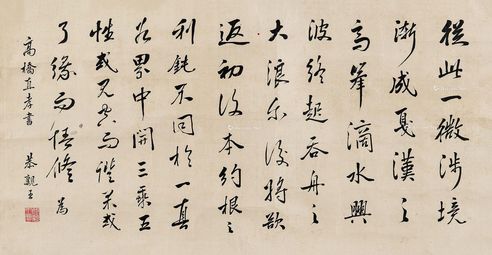 從此一微涉境
漸成戛漢之
高峯滴水興
波終起吞舟之
大浪尔後將欲
返初復本約根之
利鈍不同於一真
界中開三乘五
性或見空而證果或
了緣而悟修 為
高橋直孝書 恭親王